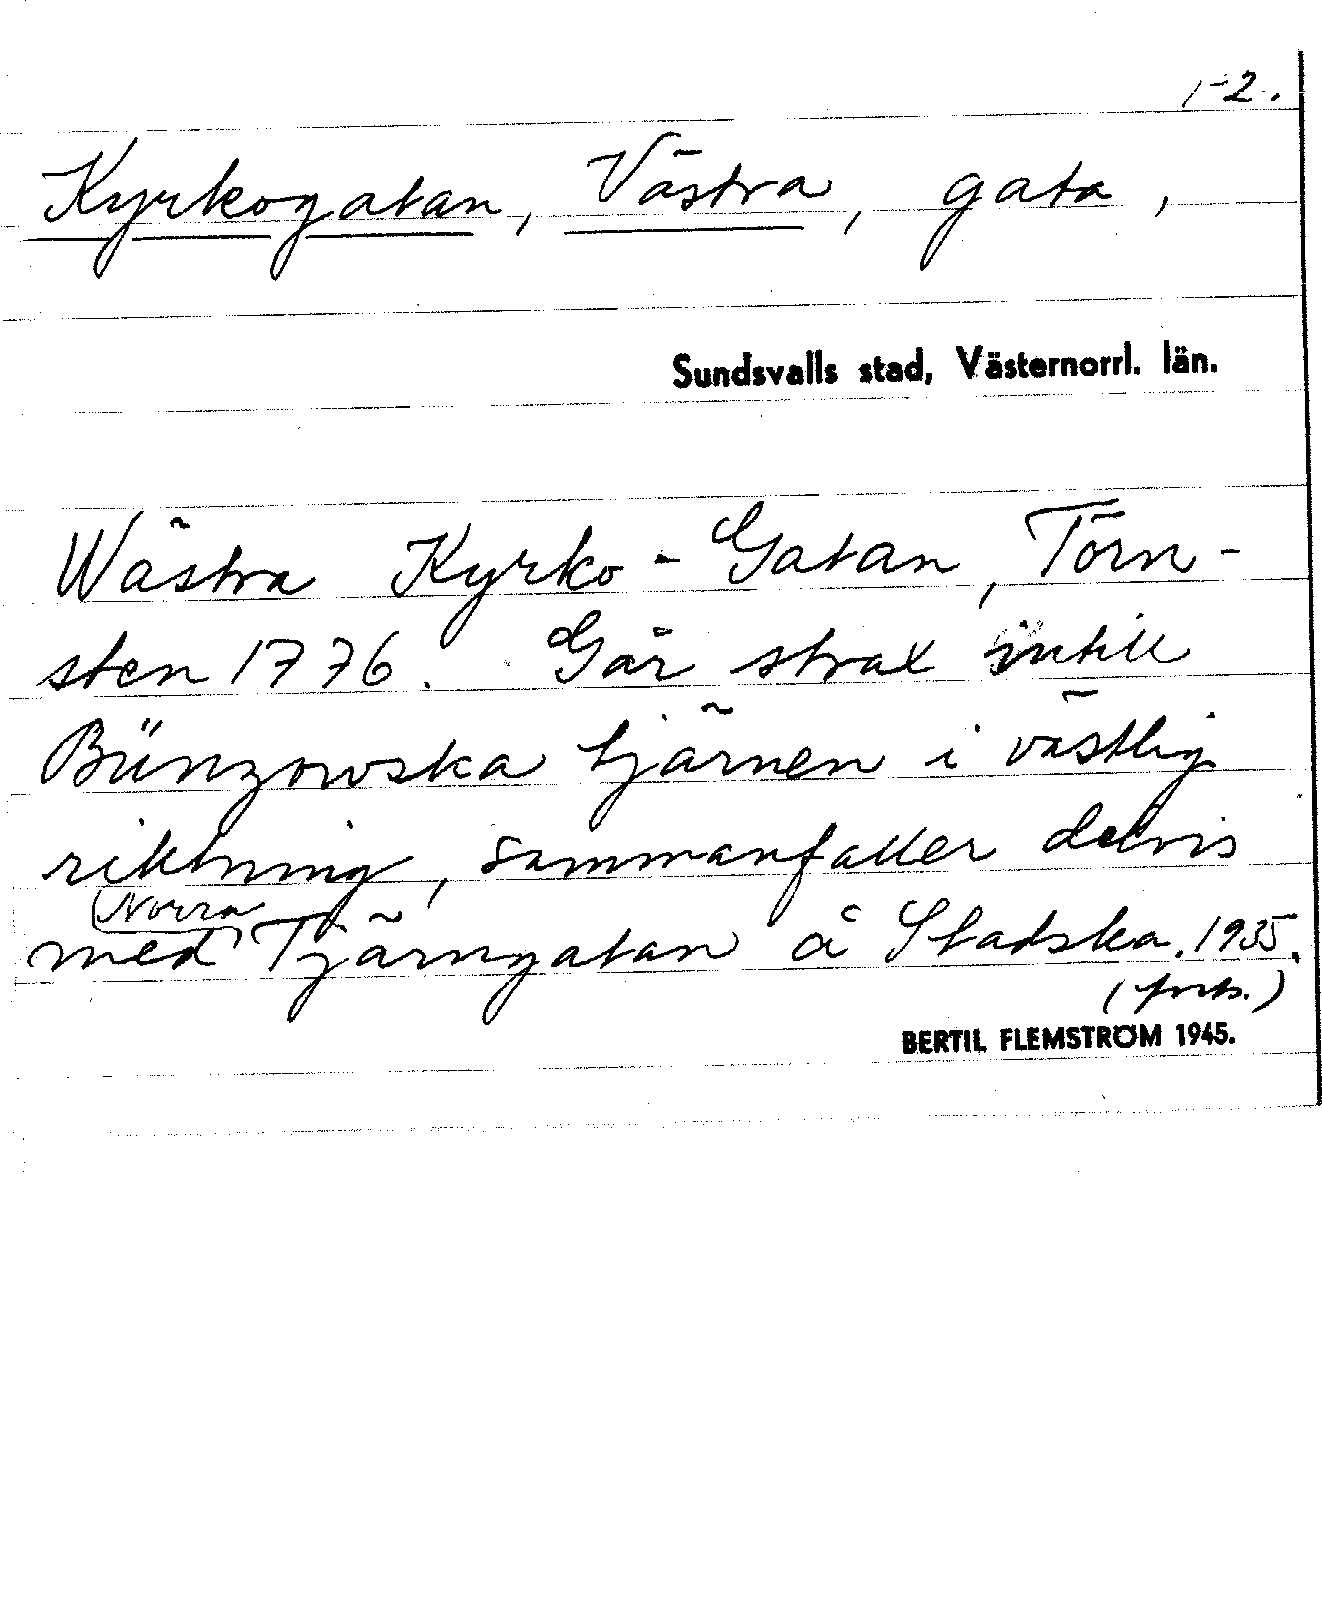 1-2.
Kyrkogatan, Västra, gata,
Sundsvalls stad, Västernorrl. län.
Wästra Kyrko-Gatan, Törn-
sten 1776. Går strax intill
Bünzowska tjärnen i västlig
riktning, sammanfaller delvis
Norra
med Tjärngatan å Stadska. 1935.
(forts.)
BERTIL FLEMSTRÖM 1945.